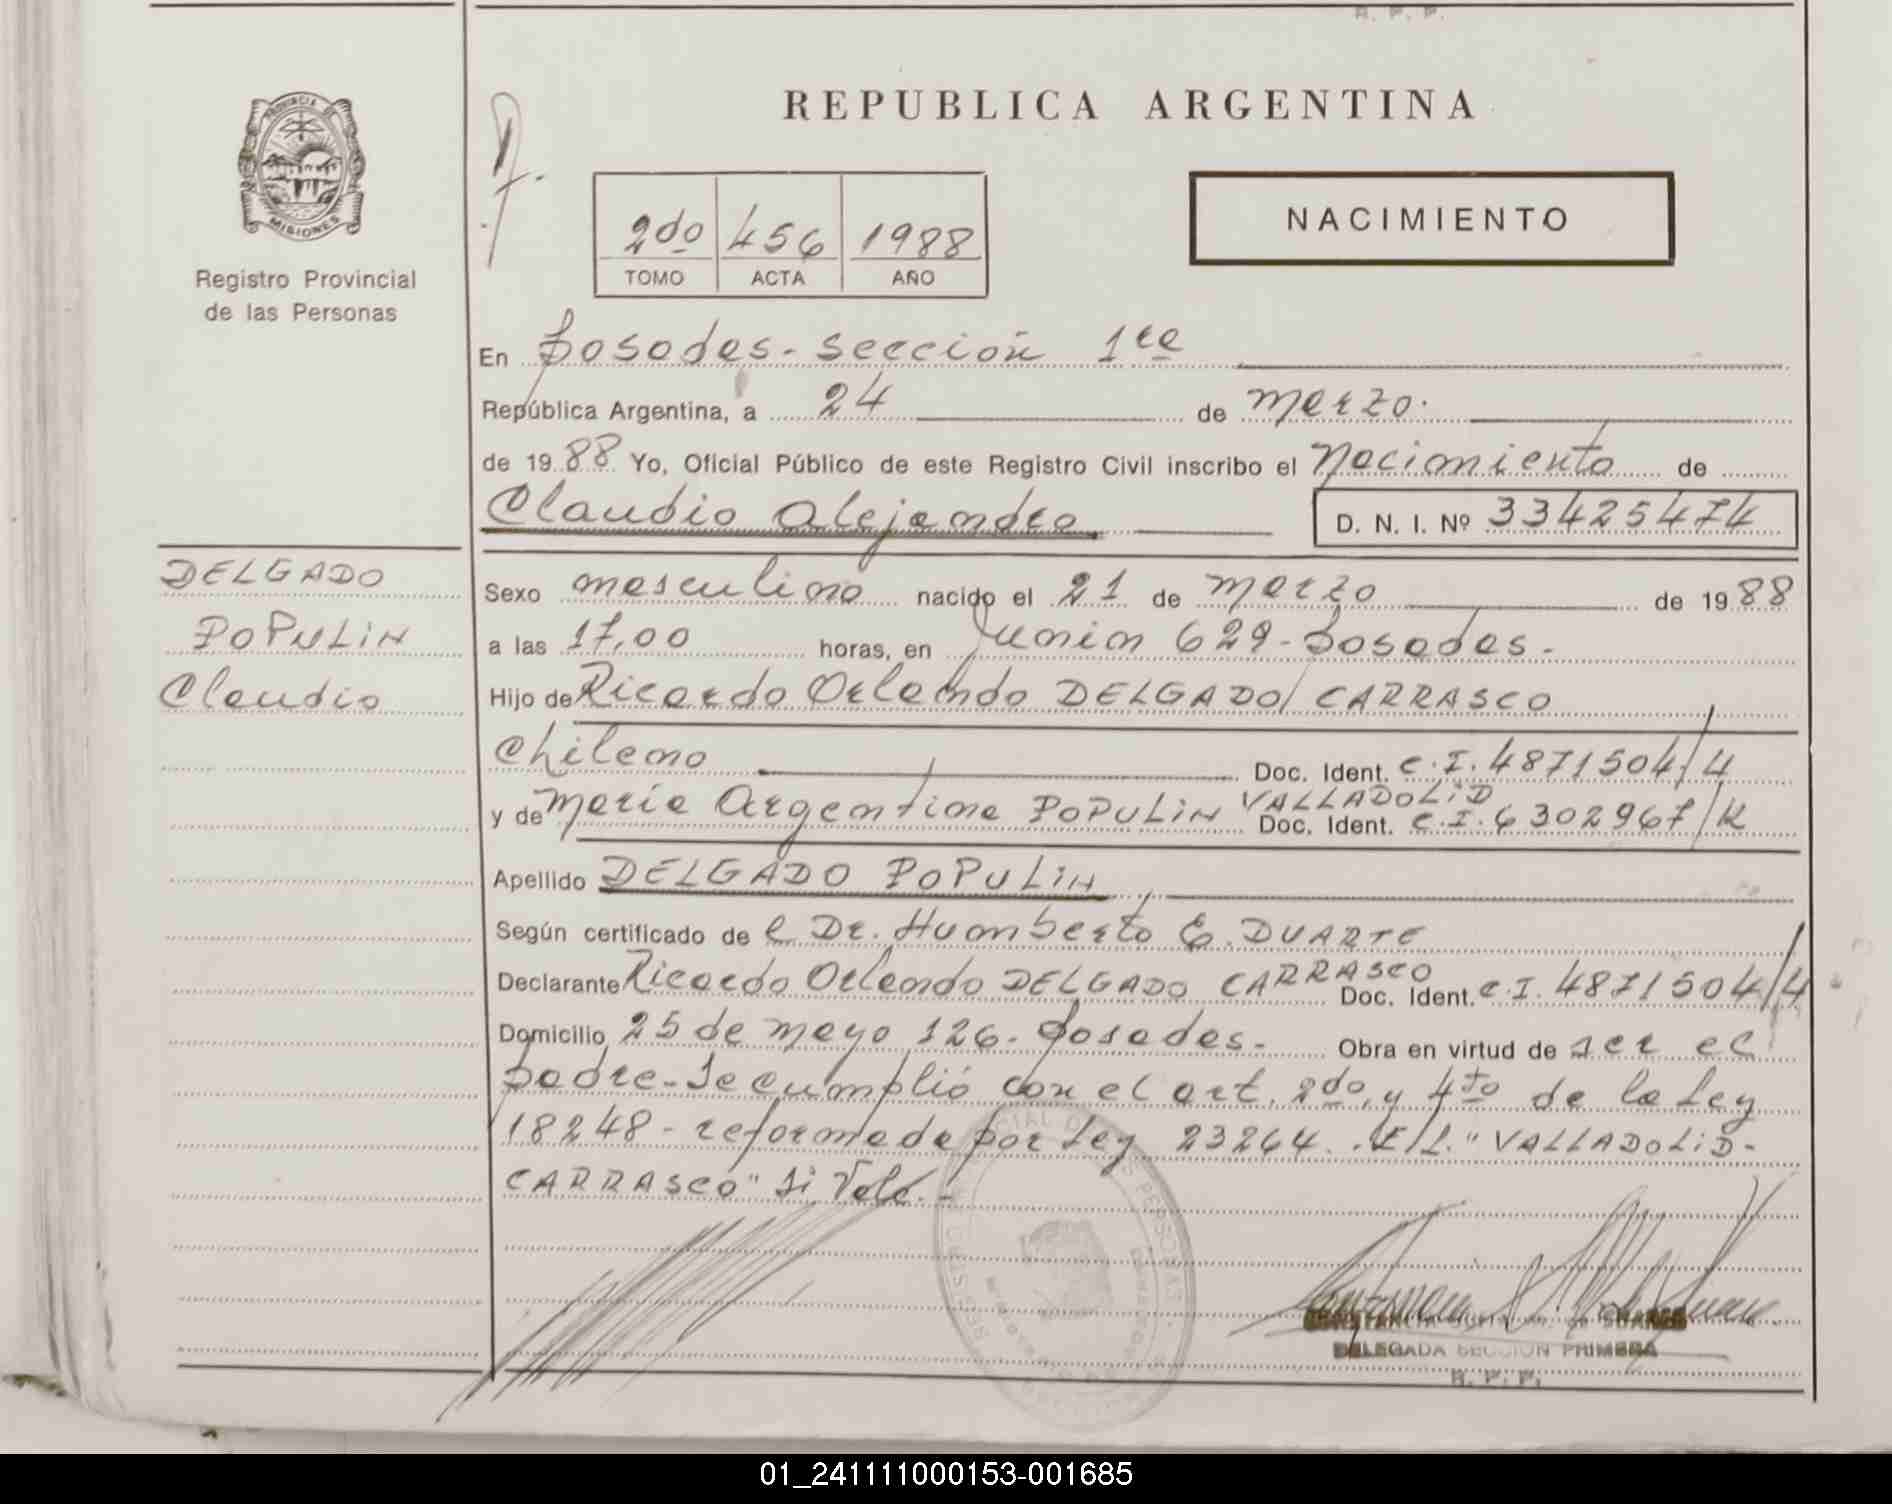 R. P. P.
REPUBLICA ARGENTINA
PROVINCIA
MISIONES
Registro Provincial
de las Personas
2do 456 1988
TOMO ACTA AÑO
NACIMIENTO
En Posadas - sección 1ra
República Argentina, a 24 de marzo.
de 1988 Yo, Oficial Público de este Registro Civil inscribo el Nacimiento de
Claudio Alejandro D. N. I. Nº 33425474
DELGADO
POPULIN
Claudio
Sexo masculino nacido el 21 de marzo de 1988
a las 17,00 horas, en Junin 629 - Posadas.-
Hijo de Ricardo Orlando DELGADO CARRASCO
Chileno Doc. Ident. C.I. 4871504/4
y de María Argentina POPULIN VALLADOLID Doc. Ident. C.I. 6302967/K
Apellido DELGADO POPULIN
Según certificado de l Dr. Humberto E. DUARTE
Declarante Ricardo Orlando DELGADO CARRASCO Doc. Ident. C.I. 4871504/4
Domicilio 25 de mayo 126 - Posadas.- Obra en virtud de ser el
padre - Se cumplió con el art. 2do, y 4to de la Ley
18248 - reformada por Ley 23264. E/L. "VALLADOLID-
CARRASCO" Si Vale.-
DELEGADA SECCION PRIMERA
R. P. P.
01_241111000153-001685